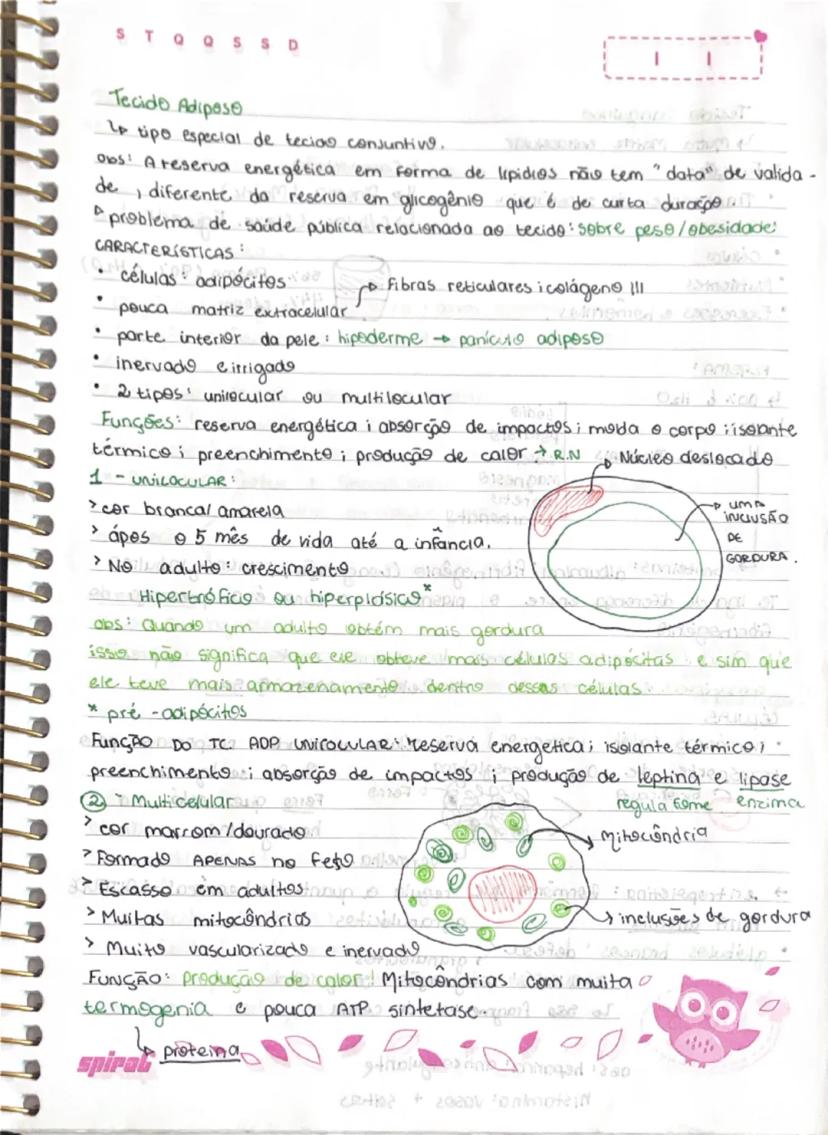 S T Q Q S S D
Tecido Adiposo
↳ tipo especial de tecido conjuntivo.
obs: A reserva energética em forma de lipídios não tem "data" de valida-
de, diferente da reserva em glicogênio que é de curta duração
problema de saúde pública relacionada ao tecido: sobre peso/obesidade
CARACTERÍSTICAS:
• células: adipócitos
→ Fibras reticulares; colágeno III
• pouca matriz extracelular
• parte interior da pele: hipoderme → panículo adiposo
• inervado e irrigado
• 2 tipos: unilocular ou multilocular
Funções: reserva energética; absorção de impactos; molda o corpo; isolante
térmico; preenchimento; produção de calor → R.N
→ Núcleo deslocado
1 - UNILOCULAR:
> cor branca/amarela
→ UMA
INCLUSÃO
DE
GORDURA.
> ápos o 5 mês de vida até a infância.
> No adulto: crescimento
Hipertrófico ou hiperplásico*
obs: Quando um adulto obtém mais gordura
isso não significa que ele obteve mais células adipócitas e sim que
ele teve mais armazenamento dentro dessas células.
* pré-adipócitos
FUNÇÃO DO TC. ADP UNIROCULAR: reserva energetica; isolante térmico;
preenchimento; absorção de impactos; produção de leptina e lipase
regula fome enzima
2 - Multicelular
> cor marrom/dourado
→ Mitocôndria
> Formado APENAS no feto
> Escasso em adultos
> Muitas mitocôndrias
→ inclusões de gordura
> Muito vascularizado e inervado
FUNÇÃO: produção de calor! Mitocôndrias com muita
termogenia e pouca ATP sintetase.
↳ proteina
spiral